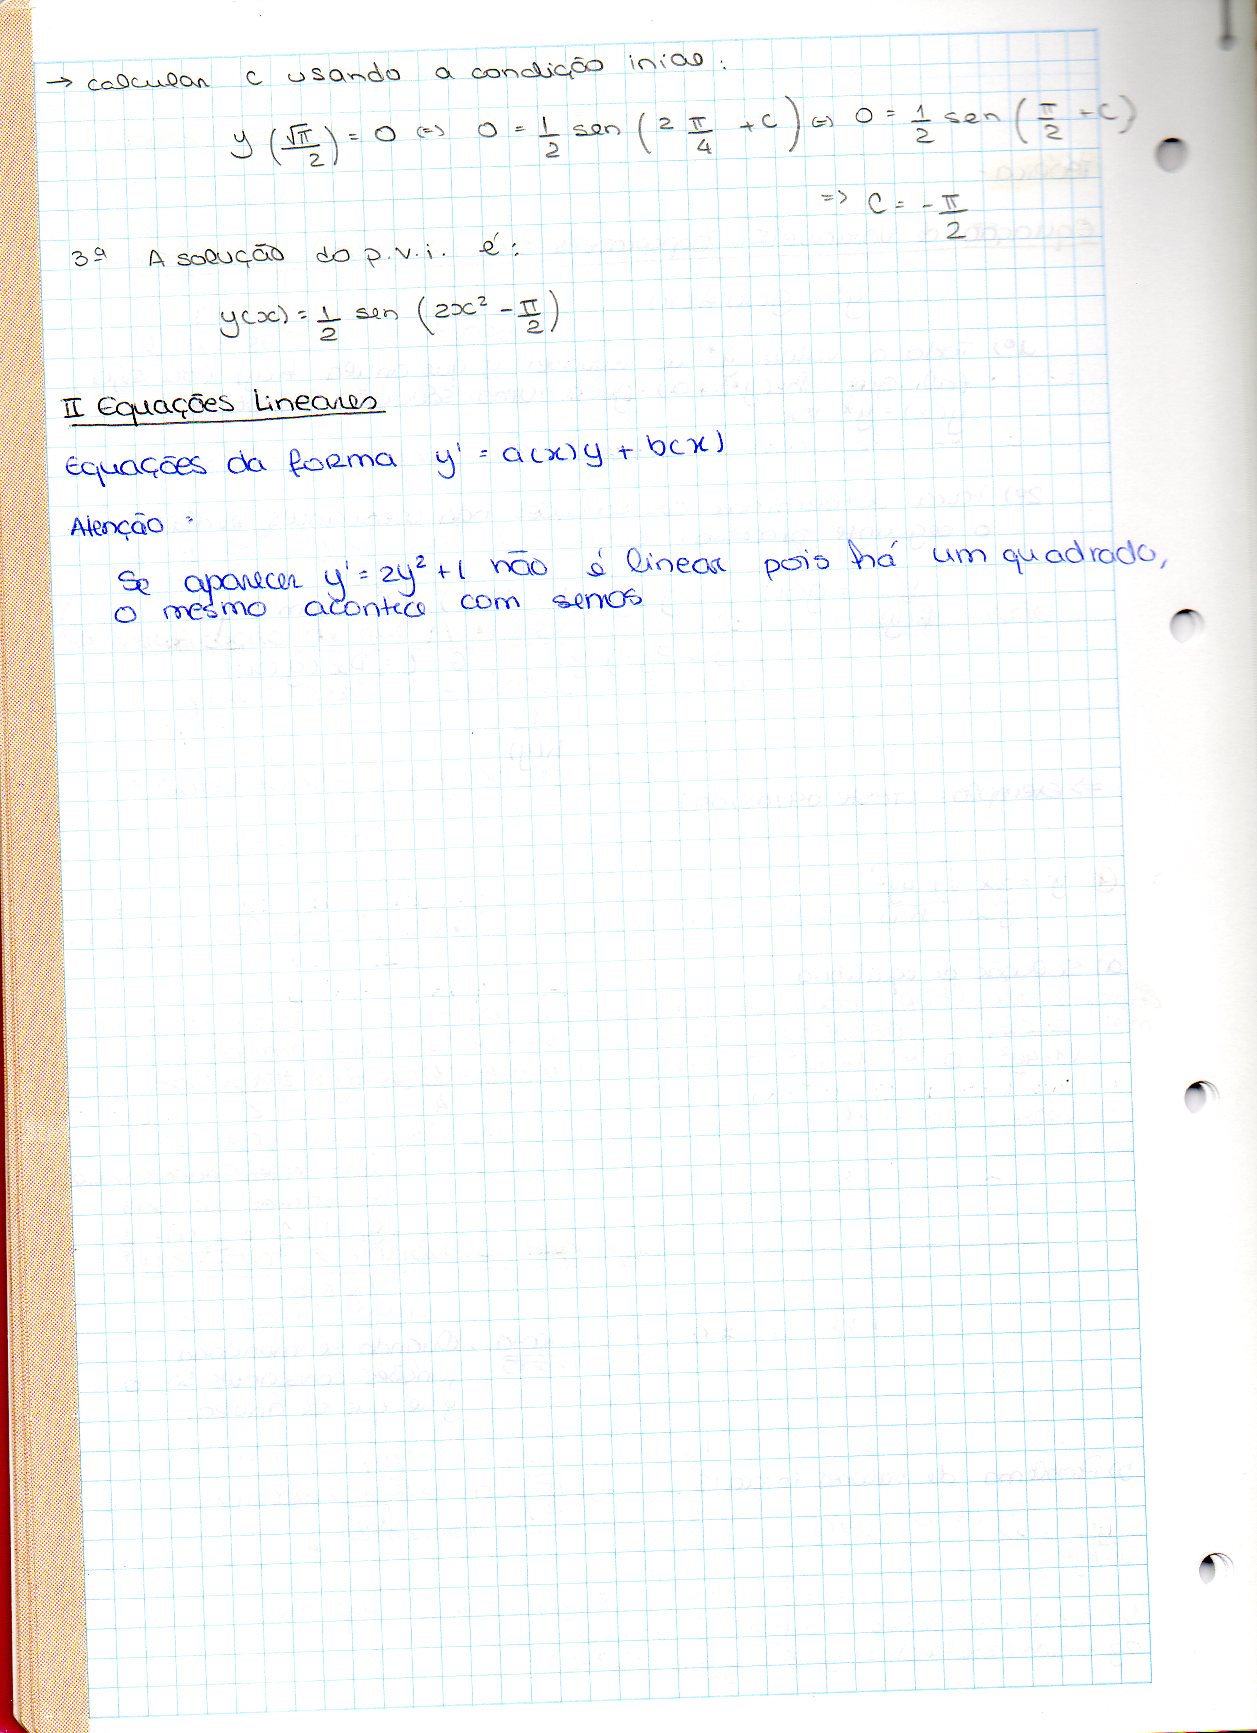 → calcular c usando a condição inial:
y(√π/2) = 0 (=) 0 = 1/2 sen (2 π/4 + C) (=) 0 = 1/2 sen (π/2 + C)
=> C = -π/2
3ª A solução do p.v.i. é:
y(x) = 1/2 sen (2x² - π/2)
II Equações Lineares
Equações da forma y' = a(x)y + b(x)
Atenção:
Se aparecer y' = 2y² + 1 não é linear pois há um quadrado,
o mesmo acontece com senos